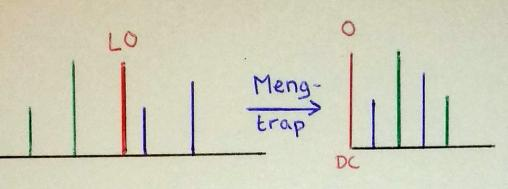 LO
Meng-
trap
O
DC